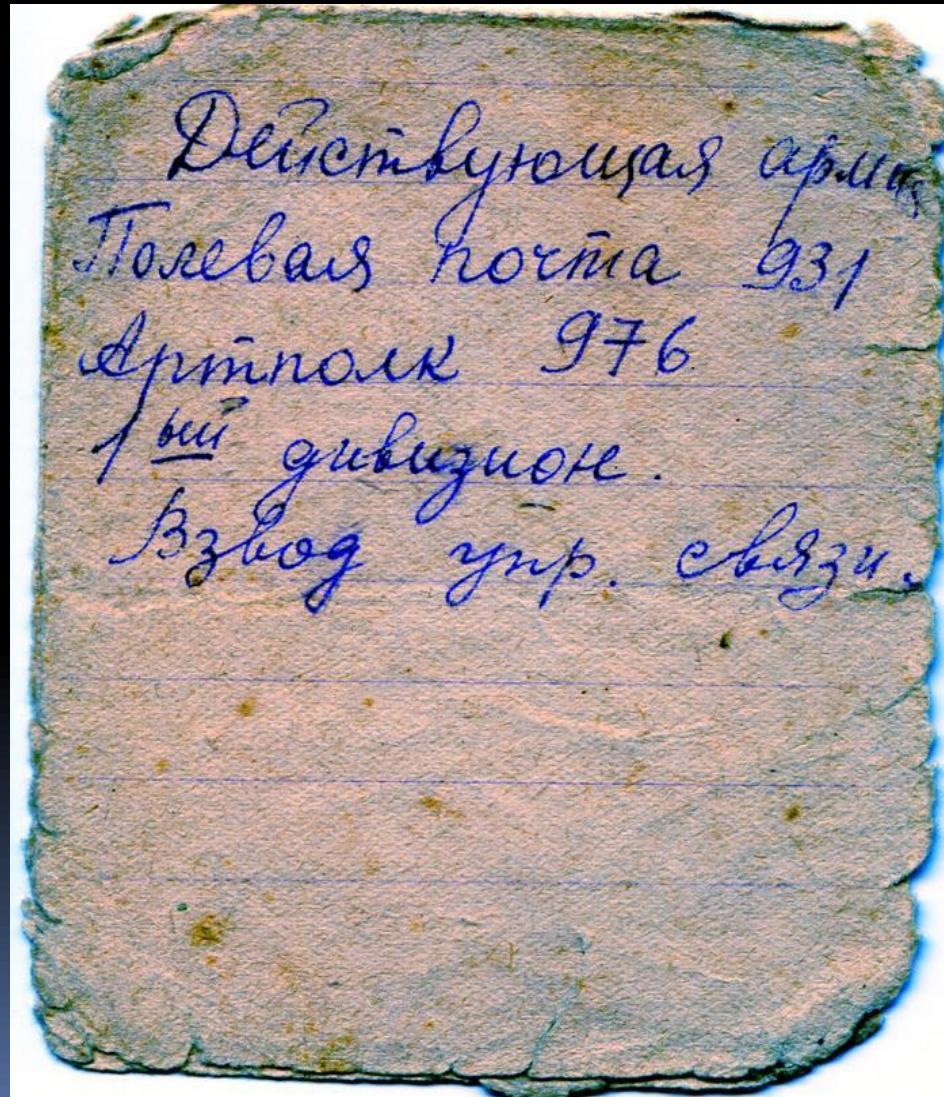 Действующая армия
Полевая почта 931
Артполк 976
1ый дивизион.
Взвод упр. связи.